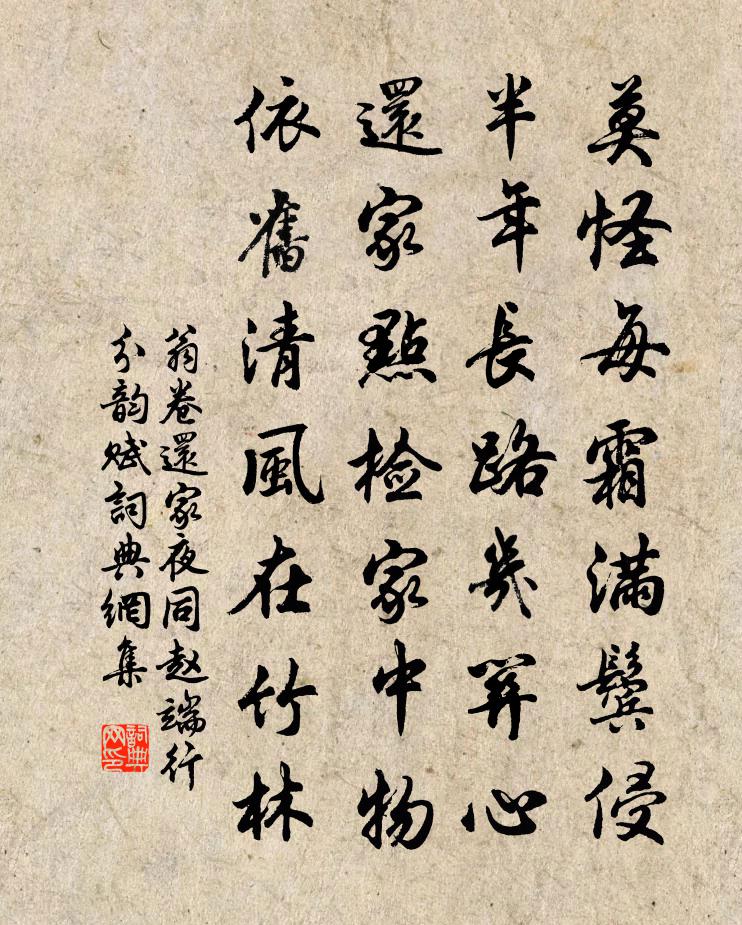 莫怪每霜滿鬢侵
半年長路幾關心
還家點檢家中物
依舊清風在竹林
翁卷還家夜同趙端行
分韵賦詞典網集
詞典网印